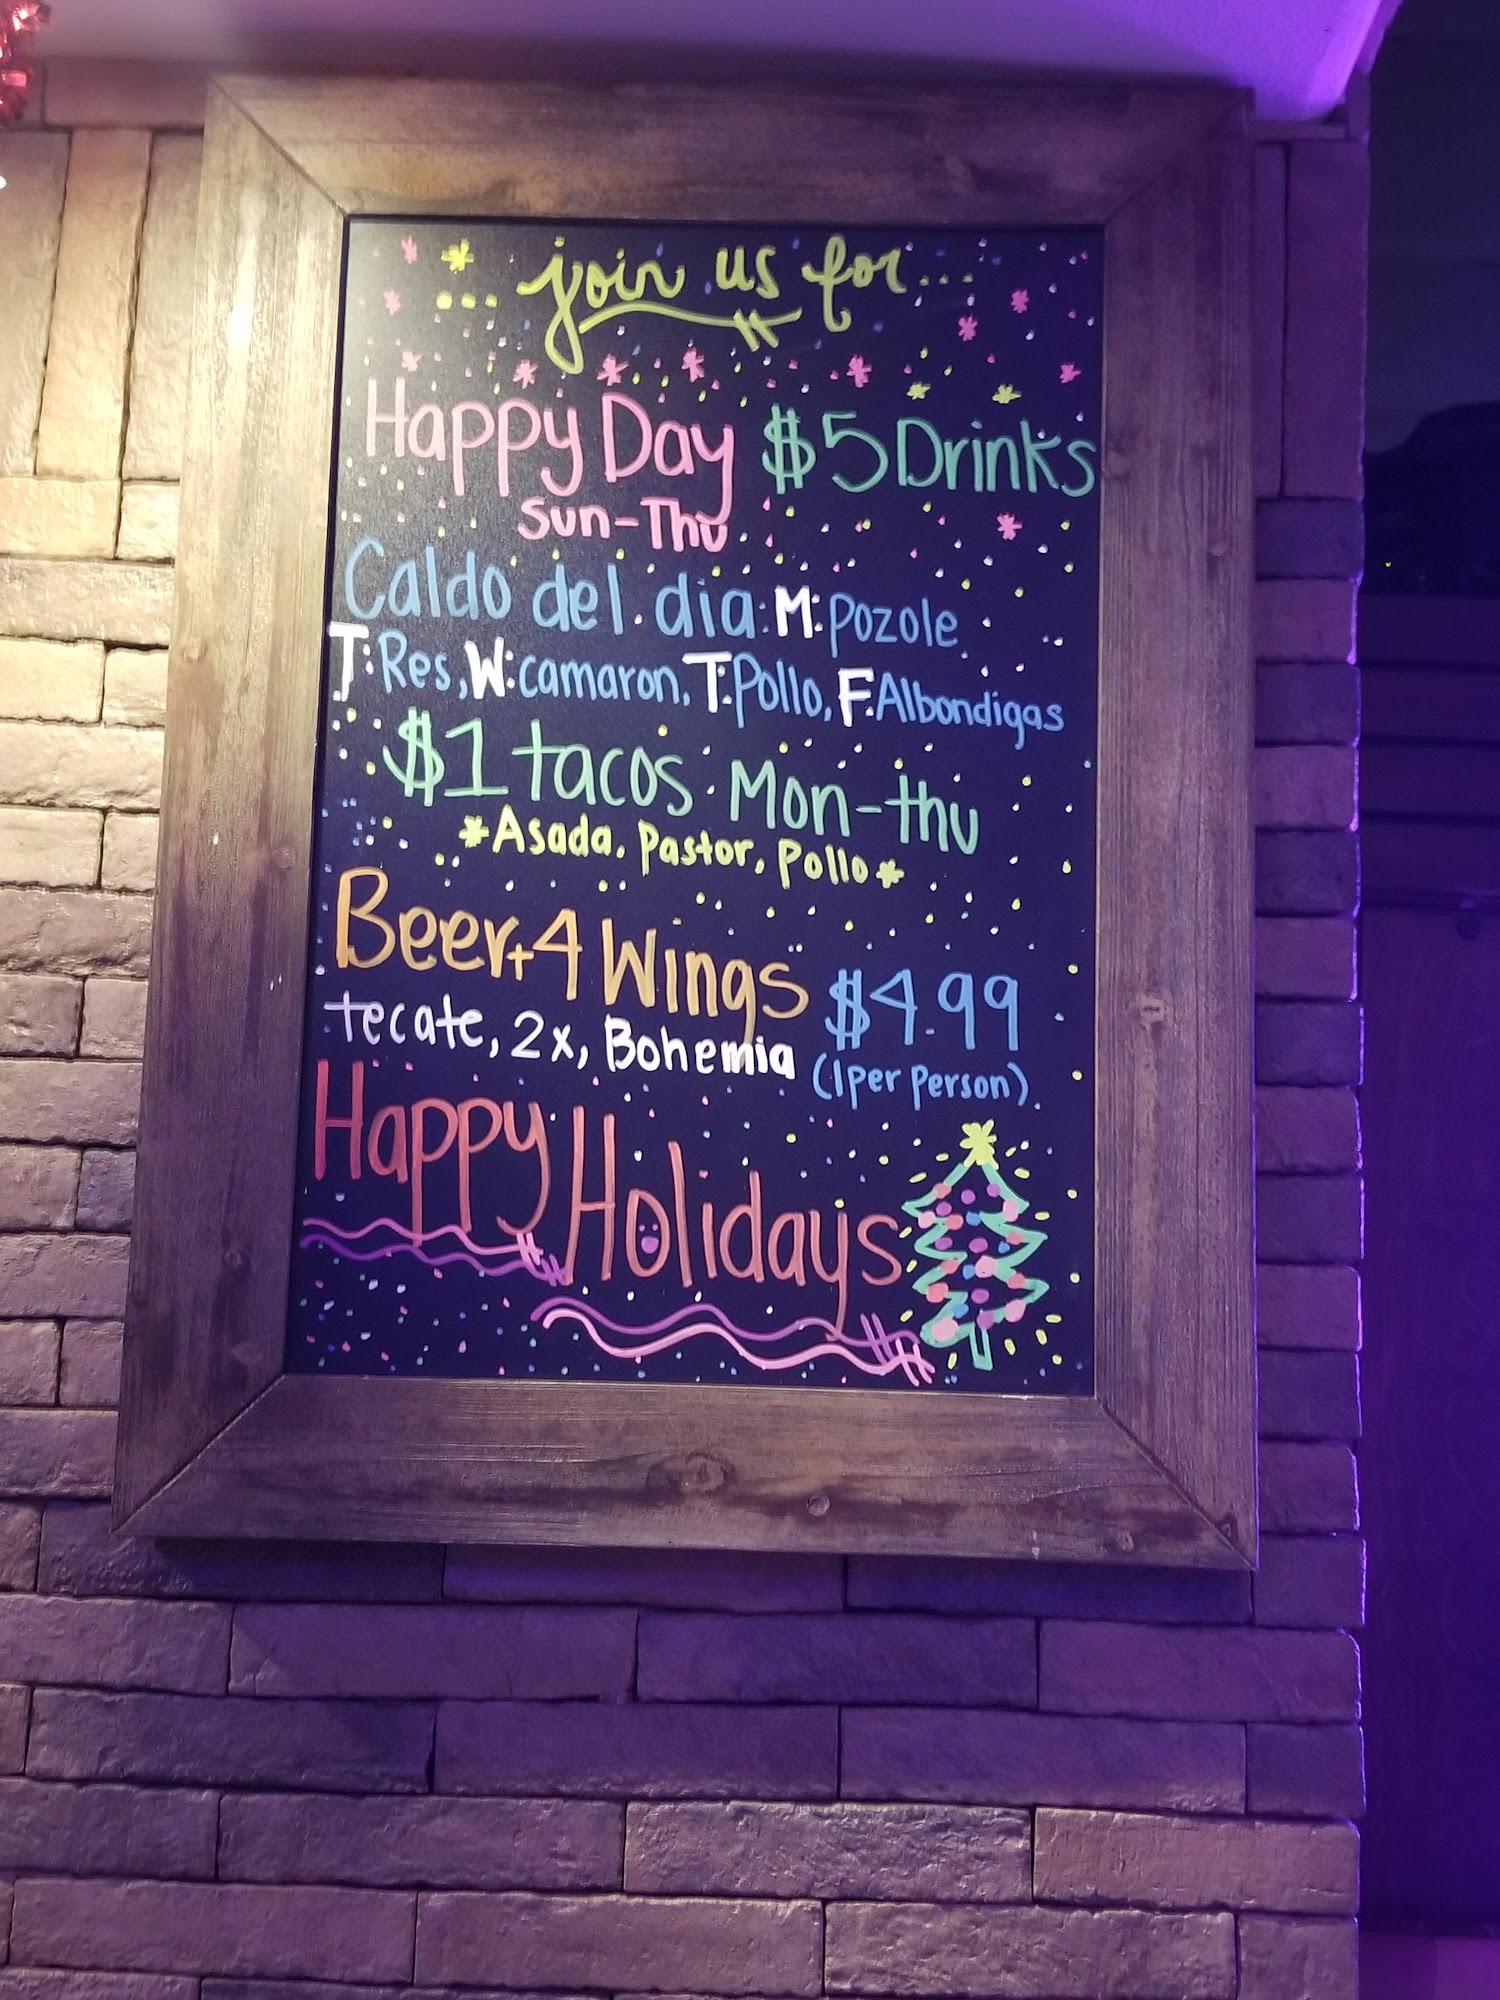 ... join us for...
Happy Day $5 Drinks
Sun-Thu
Caldo del dia: M: Pozole
T: Res, W: camaron, T: Pollo, F: Albondigas
$1 tacos Mon-thu
*Asada, Pastor, Pollo*
Beer+4 Wings $4.99
tecate, 2x, Bohemia (1 per person)
Happy Holidays